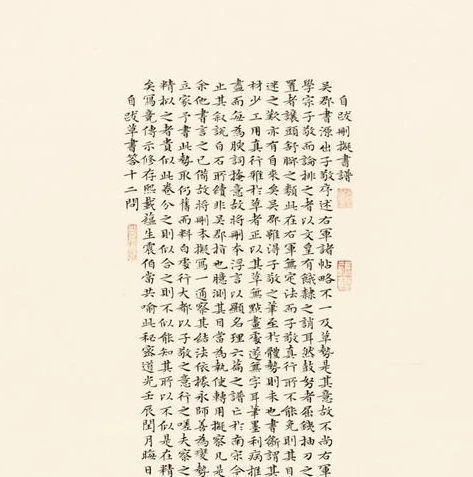 自跋刪擬書譜
吳郡書源出子敬序述右軍諸帖略不一及草勢是其意故不尚右軍
學宗子敬而論排之者以文皇有餓隸之誚耳然鼓努者屈鐵抽刀之
置者讓頭舒腳之類此在右軍無定法而子敬真行所不能免則其目
迷之歎亦有自來矣吳郡雖得子敬之筆至於體勢則未也書斷謂其
材少工用真行雅於草者正以其草無點畫處遂無字耳筆墨利病推
盡而每為腴詞掩意故將刪本浮言以顯名理六篇之譜亡於南宋今
止其敘說白石所續非吳郡指也臆測其目當為執使轉用擬察凡是
余他書言之已備故將刪本擬寫一通察其結法依據永師善為變勢
立家予書此勢取何舊而料白處行大都以子敬之意行之嗟夫察之
精擬之者貴似此卷分之則似合之則不似能知其所以不似是在精
矣寫竟傳示修存熙載蘊生震伯當共喻此秘密道光壬辰閏月晦日
自跋草書答十二問